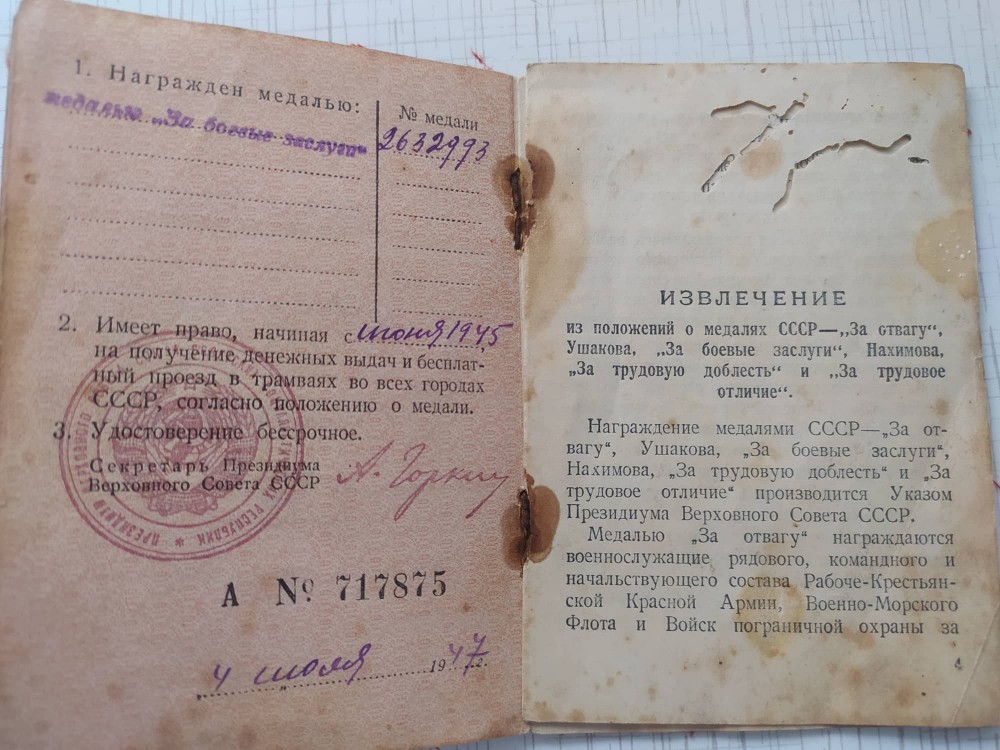 1. Награжден медалью:
№ медали
медалью „За боевые заслуги“
2632993
2. Имеет право, начиная с июня 1945,
на получение денежных выдач и бесплат-
ный проезд в трамваях во всех городах
СССР, согласно положению о медали.
3. Удостоверение бессрочное.
Секретарь Президиума
Верховного Совета СССР
А. Горкин
А № 717875
„4 июля 1947 г.
ИЗВЛЕЧЕНИЕ
из положений о медалях СССР—„За отвагу“,
Ушакова, „За боевые заслуги“, Нахимова,
„За трудовую доблесть“ и „За трудовое
отличие“.
Награждение медалями СССР—„За от-
вагу“, Ушакова, „За боевые заслуги“,
Нахимова, „За трудовую доблесть“ и „За
трудовое отличие“ производится Указом
Президиума Верховного Совета СССР.
Медалью „За отвагу“ награждаются
военнослужащие рядового, командного и
начальствующего состава Рабоче-Крестьян-
ской Красной Армии, Военно-Морского
Флота и Войск пограничной охраны за
4